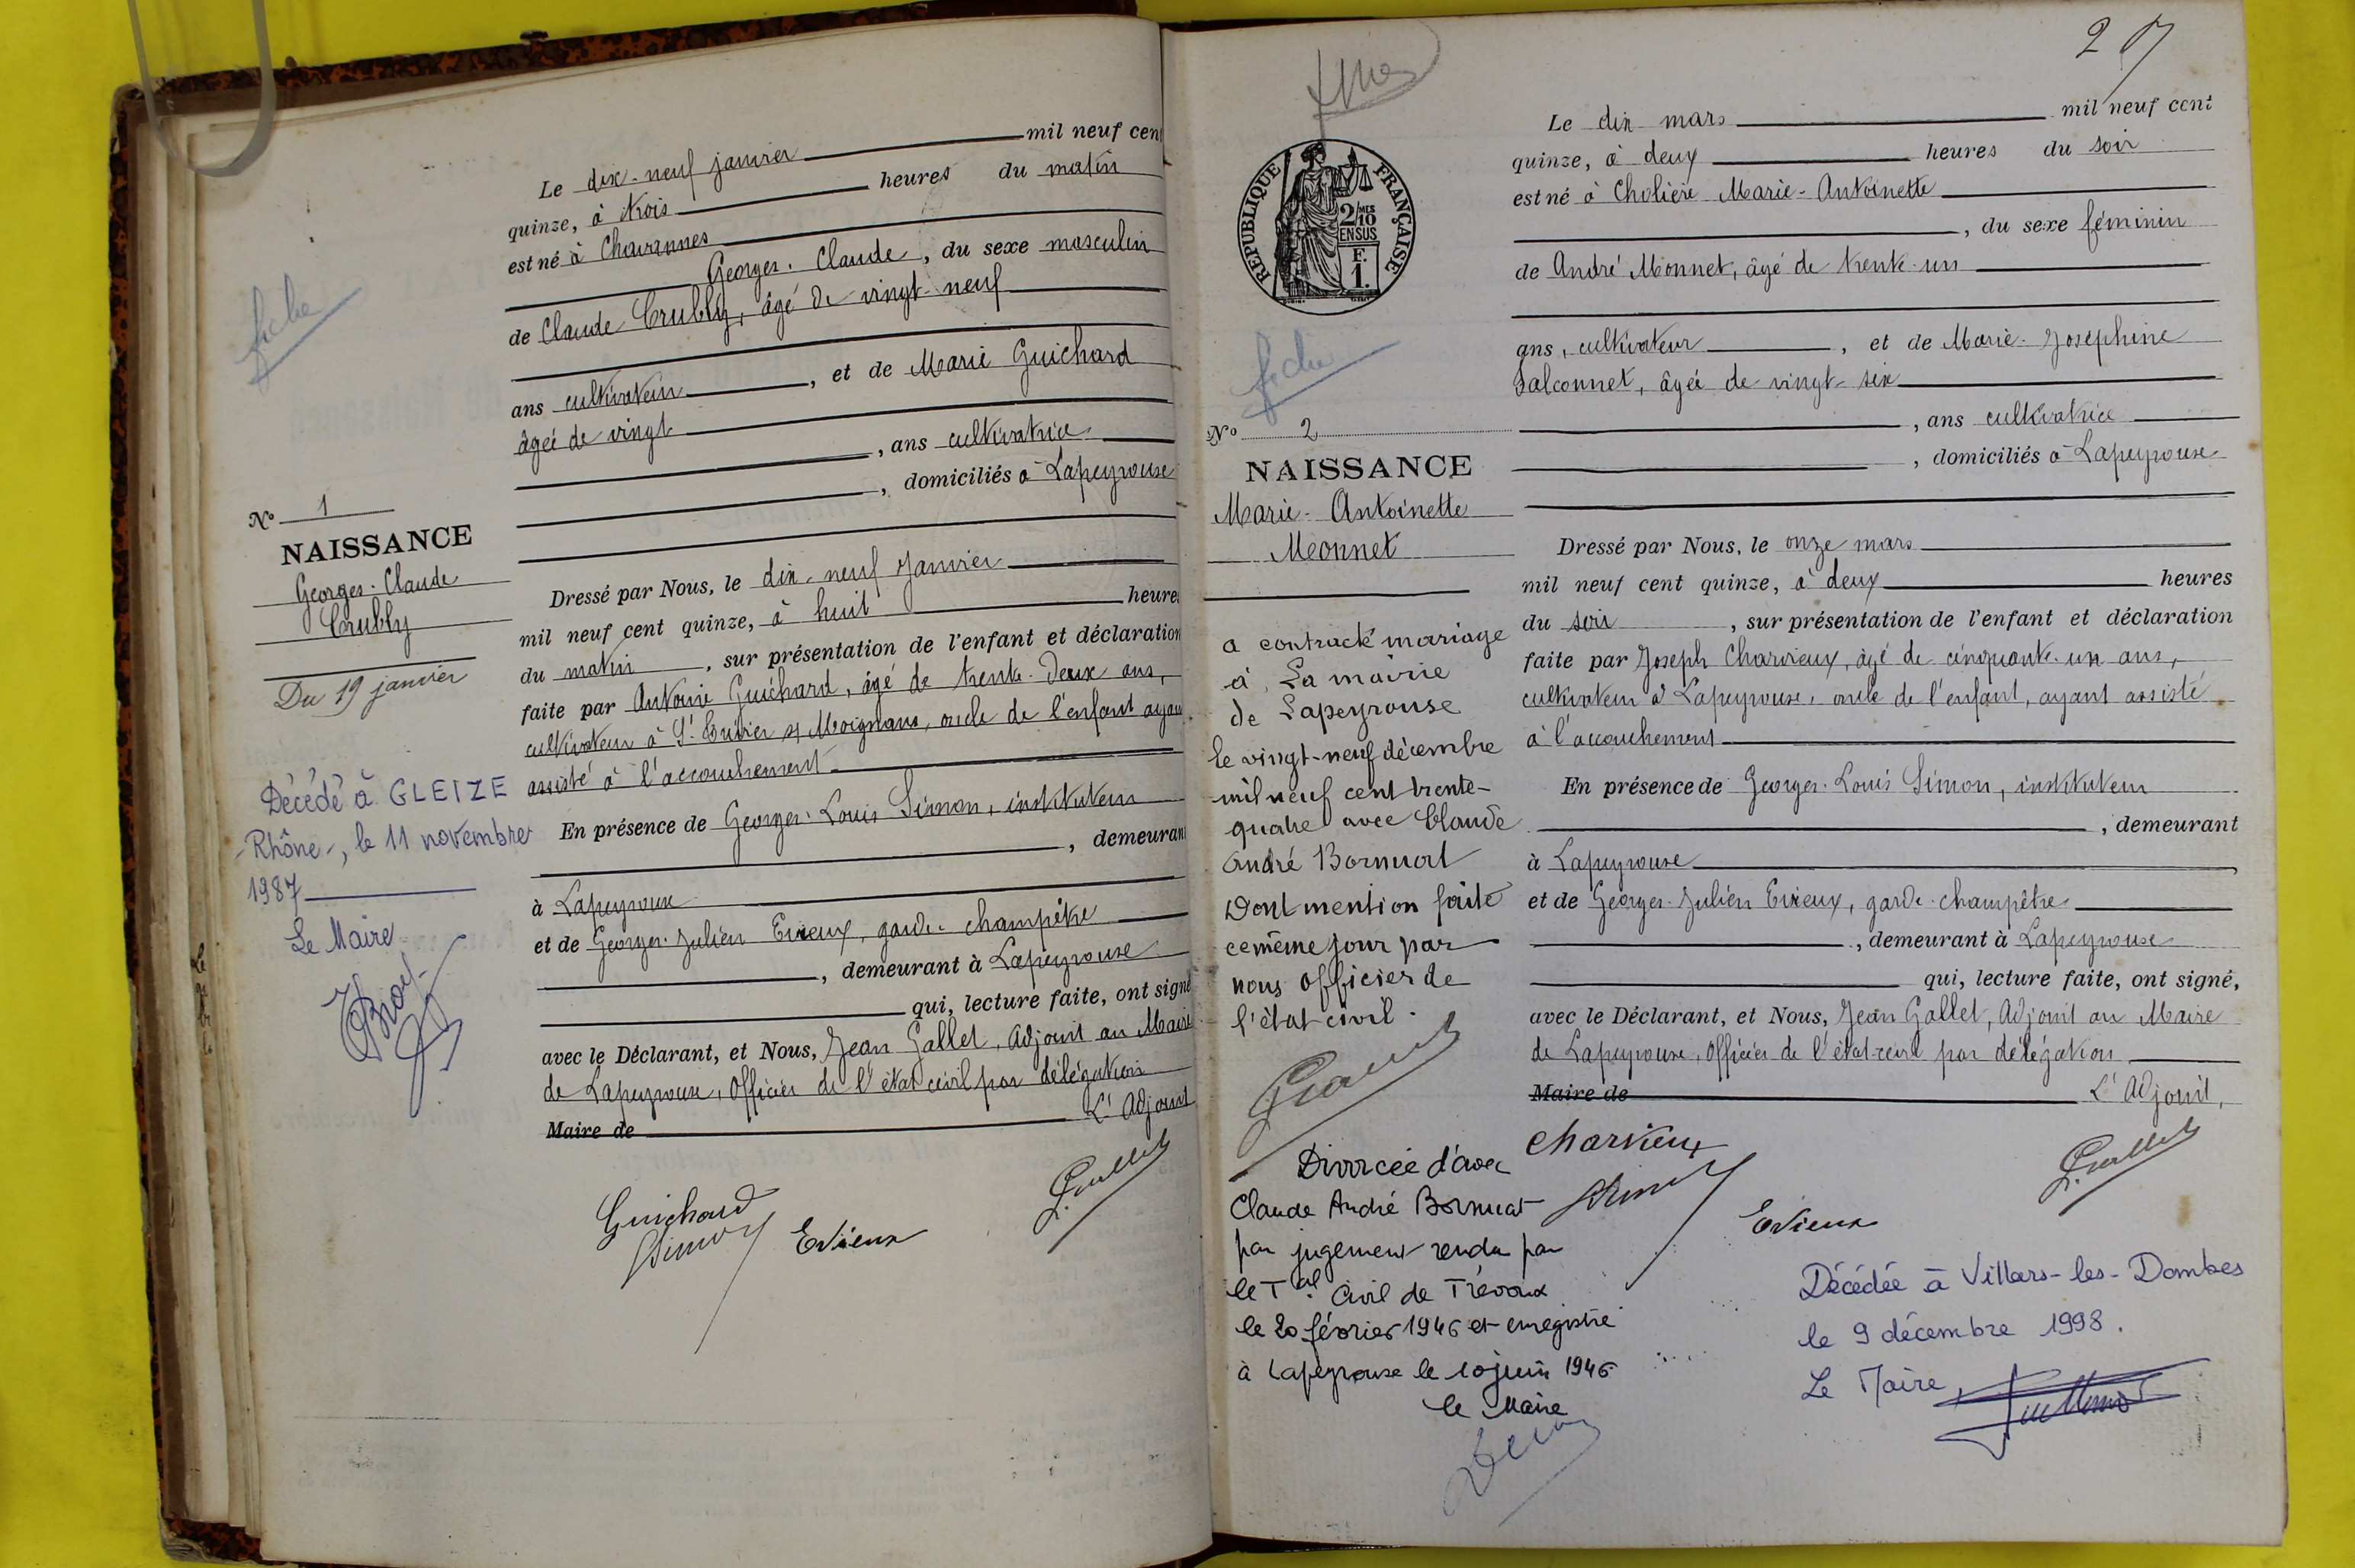 Le dix-neuf janvier mil neuf cent
quinze, à trois heures du matin
est né à Chavannes
Georges-Claude, du sexe masculin
de Claude Crubly, âgé de vingt-neuf
ans cultivateur, et de Marie Guichard
âgée de vingt
, ans cultivatrice
, domiciliés à Lapeyrouse
fiche
N° 1
NAISSANCE
Georges-Claude
Crubly
Du 19 janvier
Dressé par Nous, le dix-neuf janvier
mil neuf cent quinze, à huit heures
du matin, sur présentation de l'enfant et déclaration
faite par Antoine Guichard, âgé de trente-deux ans,
cultivateur à St Trivier s/ Moignans, oncle de l'enfant ayant
assisté à l'accouchement
En présence de Georges-Louis Simon, instituteur
, demeurant
à Lapeyrouse
et de Georges-Julien Evieux, garde-champêtre
, demeurant à Lapeyrouse
qui, lecture faite, ont signé
avec le Déclarant, et Nous, Jean Gallet, Adjoint au Maire
de Lapeyrouse, Officier de l'état-civil par délégation
Maire de L'Adjoint
Guichard
Simon
Evieux
Gallet
Décédé à GLEIZE
-Rhône-, le 11 novembre
1987
Le Maire
2
REPUBLIQUE FRANÇAISE
2/10
MES
EN SUS
F.
1.
fiche
N° 2
NAISSANCE
Marie-Antoinette
Monnet
a contracté mariage
à La mairie
de Lapeyrouse
le vingt-neuf décembre
mil neuf cent trente-
quatre avec Claude
André Bornuat
Dont mention faite
ce même jour par
nous officier de
l'état civil.
Divorcée d'avec
Claude André Bornuat
par jugement rendu par
le Tal Civil de Trévoux
le 20 février 1946 et enregistré
à Lapeyrouse le 10 juin 1946
le Maire
Le dix mars mil neuf cent
quinze, à deux heures du soir
est né à Cholière Marie-Antoinette
, du sexe féminin
de André Monnet, âgé de trente-un
ans, cultivateur, et de Marie-Joséphine
Falconnet, âgée de vingt-six
, ans cultivatrice
, domiciliés à Lapeyrouse
Dressé par Nous, le onze mars
mil neuf cent quinze, à deux heures
du soir, sur présentation de l'enfant et déclaration
faite par Joseph Charvieux, âgé de cinquante-un ans,
cultivateur à Lapeyrouse, oncle de l'enfant, ayant assisté
à l'accouchement
En présence de Georges-Louis Simon, instituteur
, demeurant
à Lapeyrouse
et de Georges-Julien Evieux, garde-champêtre
, demeurant à Lapeyrouse
qui, lecture faite, ont signé,
avec le Déclarant, et Nous, Jean Gallet, Adjoint au Maire
de Lapeyrouse, Officier de l'état-civil par délégation
Maire de L'Adjoint,
Charvieux
Simon
Evieux
Gallet
Décédée à Villars-les-Dombes
le 9 décembre 1998.
Le Maire,